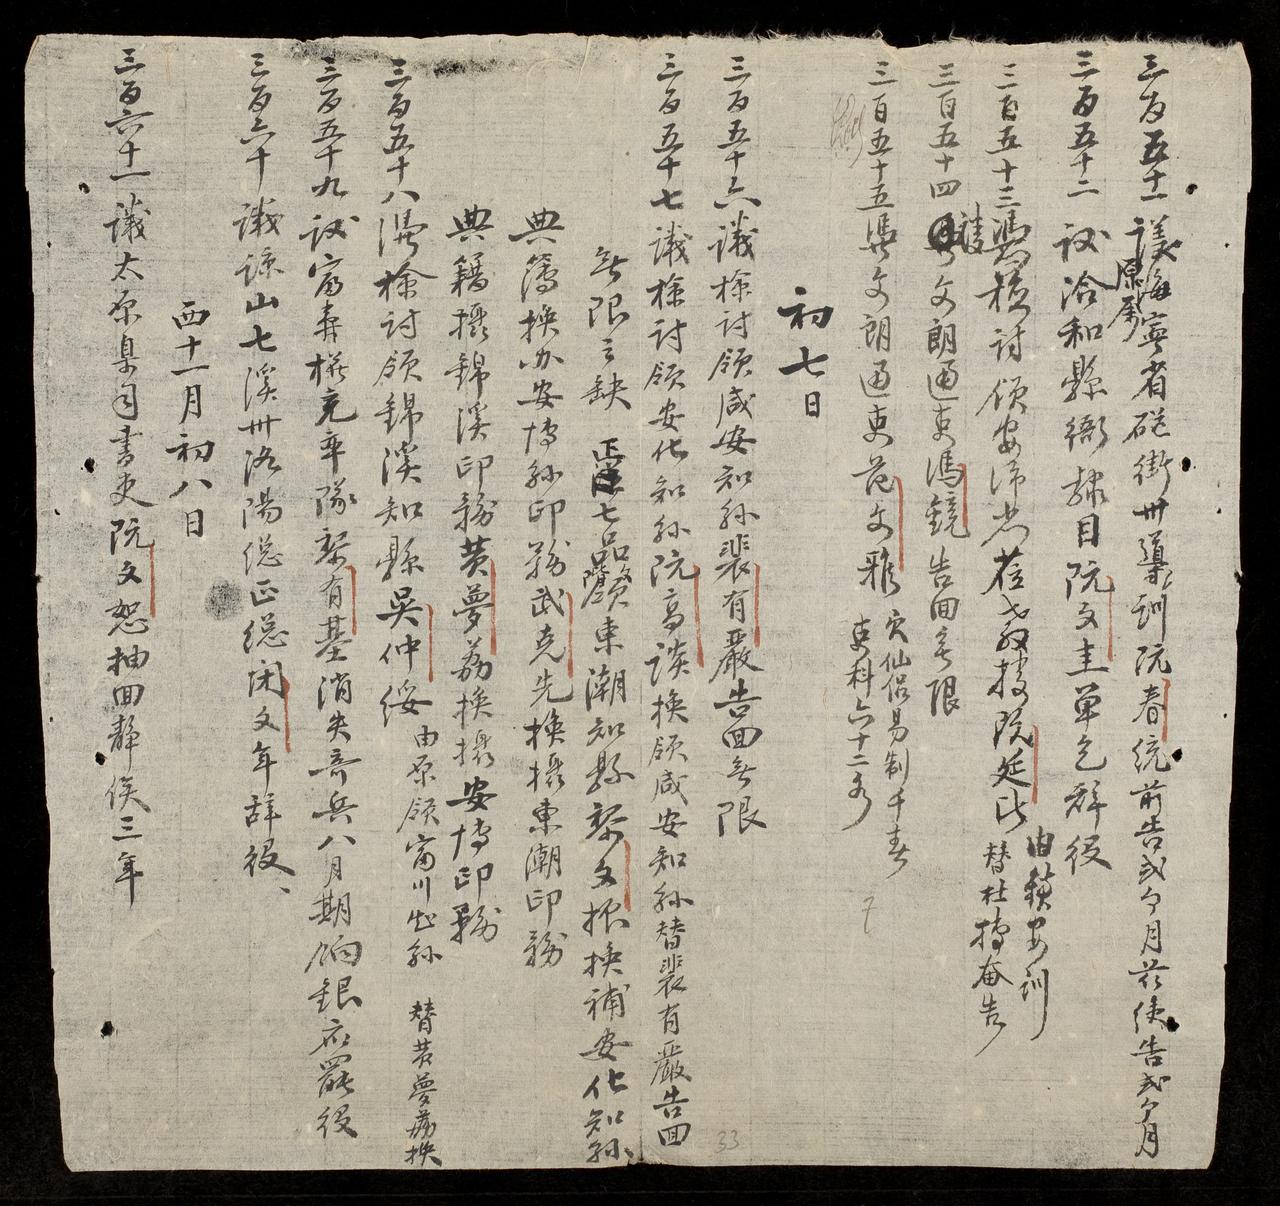 三百五十一議海寧省硭街卅導訓阮春統前告弍个月茲使告弍个月
原
三百五十二議洽和縣衙隸目阮文圭單乞辭役
三百五十三憑檢討領安沛教授阮廷
由鎮安訓
替杜摶奮告
三百五十四請文朗通吏馮鏡告回無限
三百五十五憑文朗通吏范文雅
穴仙侶易制千
吏科六十二名
初七日
三百五十六議檢討領咸安知縣裴有嚴告回無限
三百五十七議檢討領安化知縣阮高談換領咸安知縣替裴有嚴告回
無限之缺 正七品 東潮知縣黎文振換補安化知縣
典簿換办安博縣印務武克先換攝東潮印務
典籍攝錦溪印務黄夢荔換攝安博印務
三百五十八憑檢討領錦溪知縣吳仲綏
由原領富川知縣 替黄夢荔換
三百五十九議富壽權充率隊黎有基消失奇兵八月期餉銀宜罷役
三百六十議諒山七溪卅洛陽總正總閉文年辭役
西十一月初八日
三百六十一議太原臬司書吏阮文恕抽回靜俟三年
33